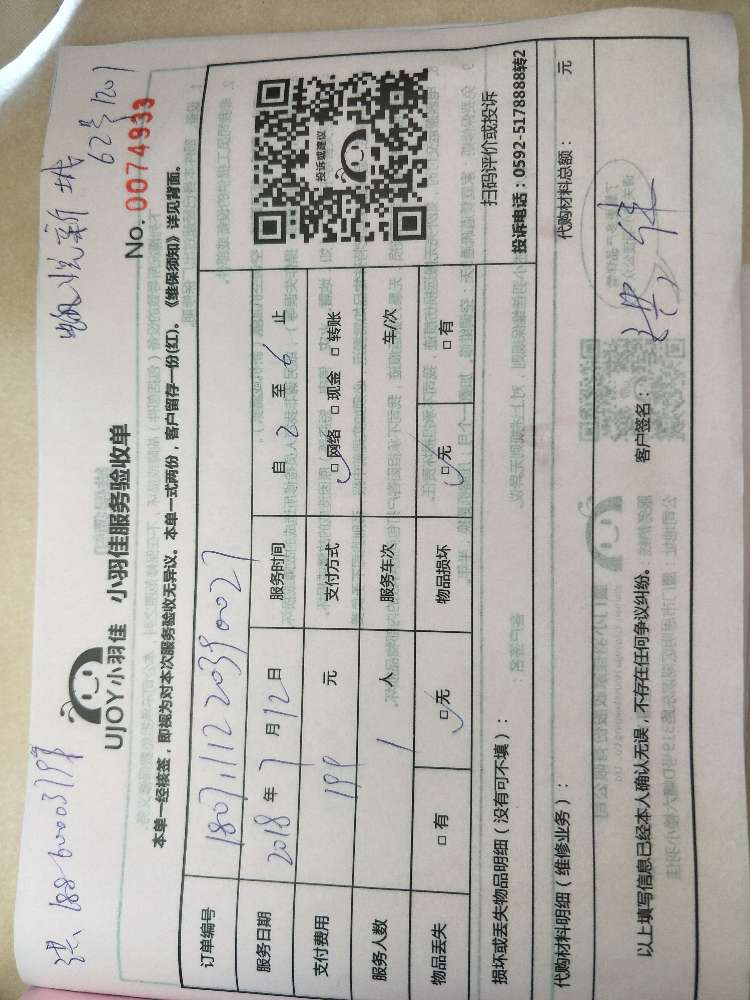 UJOY小羽佳 小羽佳服务验收单
No. 0074933
62号1201
本单一经核签，即视为对本次服务验收无异议。本单一式两份，客户留存一份(红)。《维保须知》详见背面。
订单编号
服务日期 2018 年 7 月 12 日 服务时间 自 2 至 6 止
支付费用 199 元 支付方式 □网络 □现金 □转账
服务人数 1 人 服务车次 车/次
物品丢失 □有 □无 物品损坏 □无 □有
投诉或建议
扫码评价或投诉
投诉电话：0592-5178888转2
损坏或丢失物品明细（没有可不填）：
代购材料明细（维修业务）： 代购材料总额： 元
以上填写信息已经本人确认无误，不存在任何争议纠纷。 客户签名：